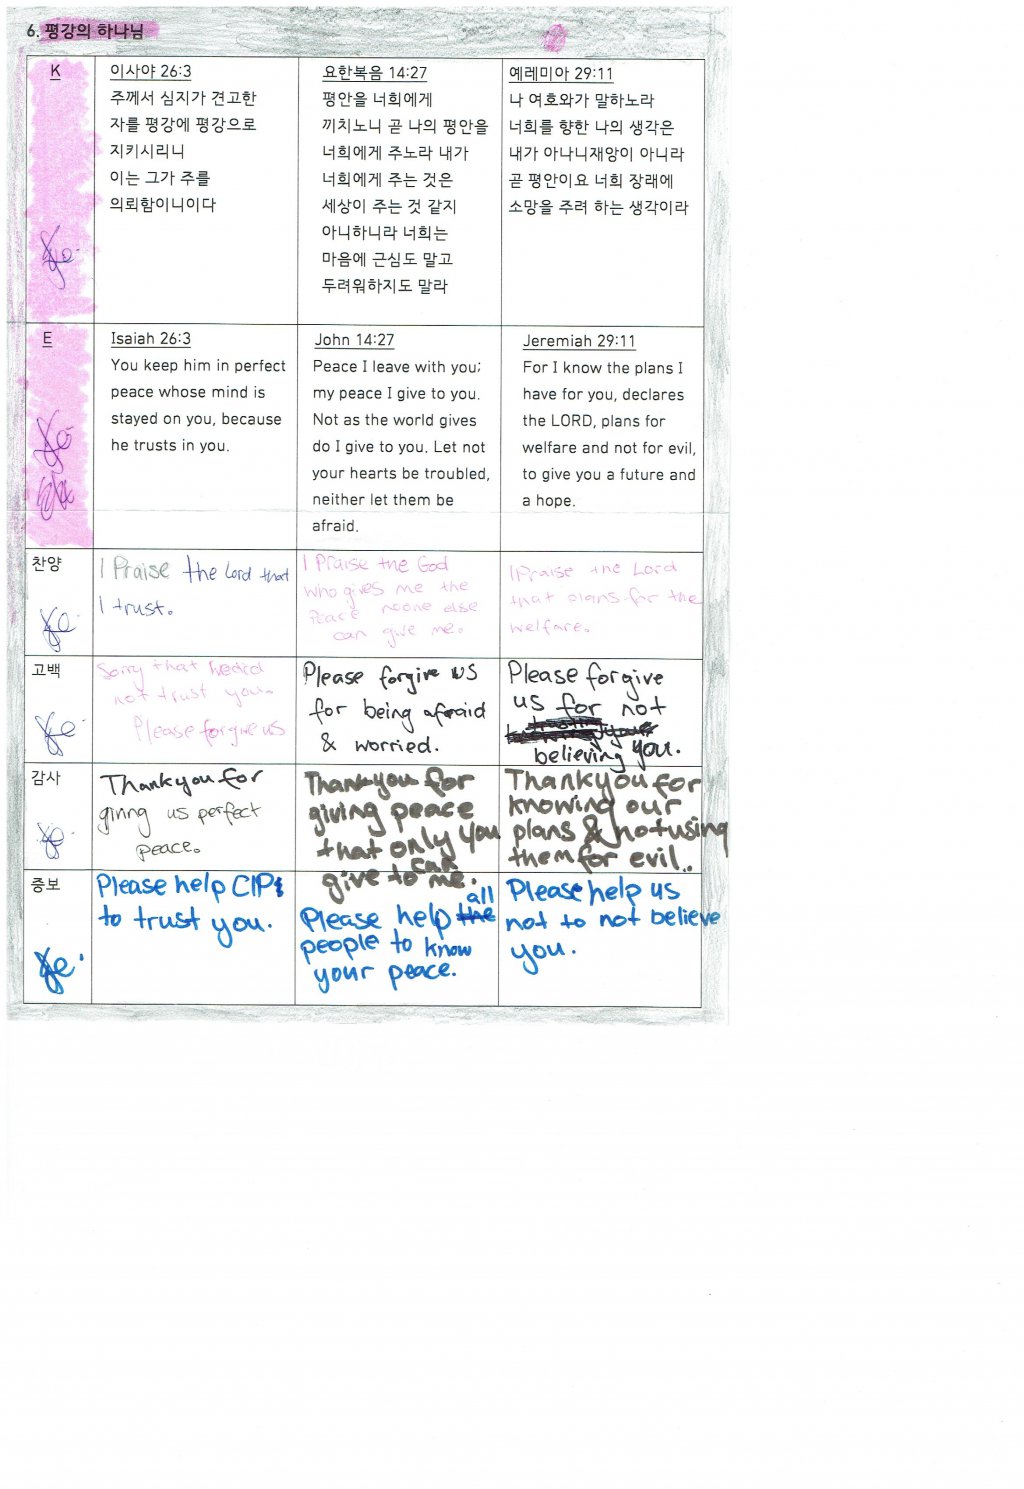 6. 평강의 하나님
K
이사야 26:3
주께서 심지가 견고한
자를 평강에 평강으로
지키시리니
이는 그가 주를
의뢰함이니이다
요한복음 14:27
평안을 너희에게
끼치노니 곧 나의 평안을
너희에게 주노라 내가
너희에게 주는 것은
세상이 주는 것 같지
아니하니라 너희는
마음에 근심도 말고
두려워하지도 말라
예레미아 29:11
나 여호와가 말하노라
너희를 향한 나의 생각은
내가 아나니재앙이 아니라
곧 평안이요 너희 장래에
소망을 주려 하는 생각이라
E
Isaiah 26:3
You keep him in perfect
peace whose mind is
stayed on you, because
he trusts in you.
John 14:27
Peace I leave with you;
my peace I give to you.
Not as the world gives
do I give to you. Let not
your hearts be troubled,
neither let them be
afraid.
Jeremiah 29:11
For I know the plans I
have for you, declares
the LORD, plans for
welfare and not for evil,
to give you a future and
a hope.
찬양
I Praise the Lord that
I trust.
I Praise the God
who gives me the
Peace noone else
can give me.
I Praise the Lord
that plans for the
welfare.
고백
Sorry that we did
not trust you.
Please forgive us
Please forgive us
for being afraid
& worried.
Please forgive
us for not
believing you.
감사
Thankyou for
giving us perfect
peace.
Thankyou for
giving peace
that only you
can
give to me.
Thankyou for
knowing our
plans & not using
them for evil..
중보
Please help CIPs
to trust you.
all
Please help the
people to know
your peace.
Please help us
not to not believe
you.